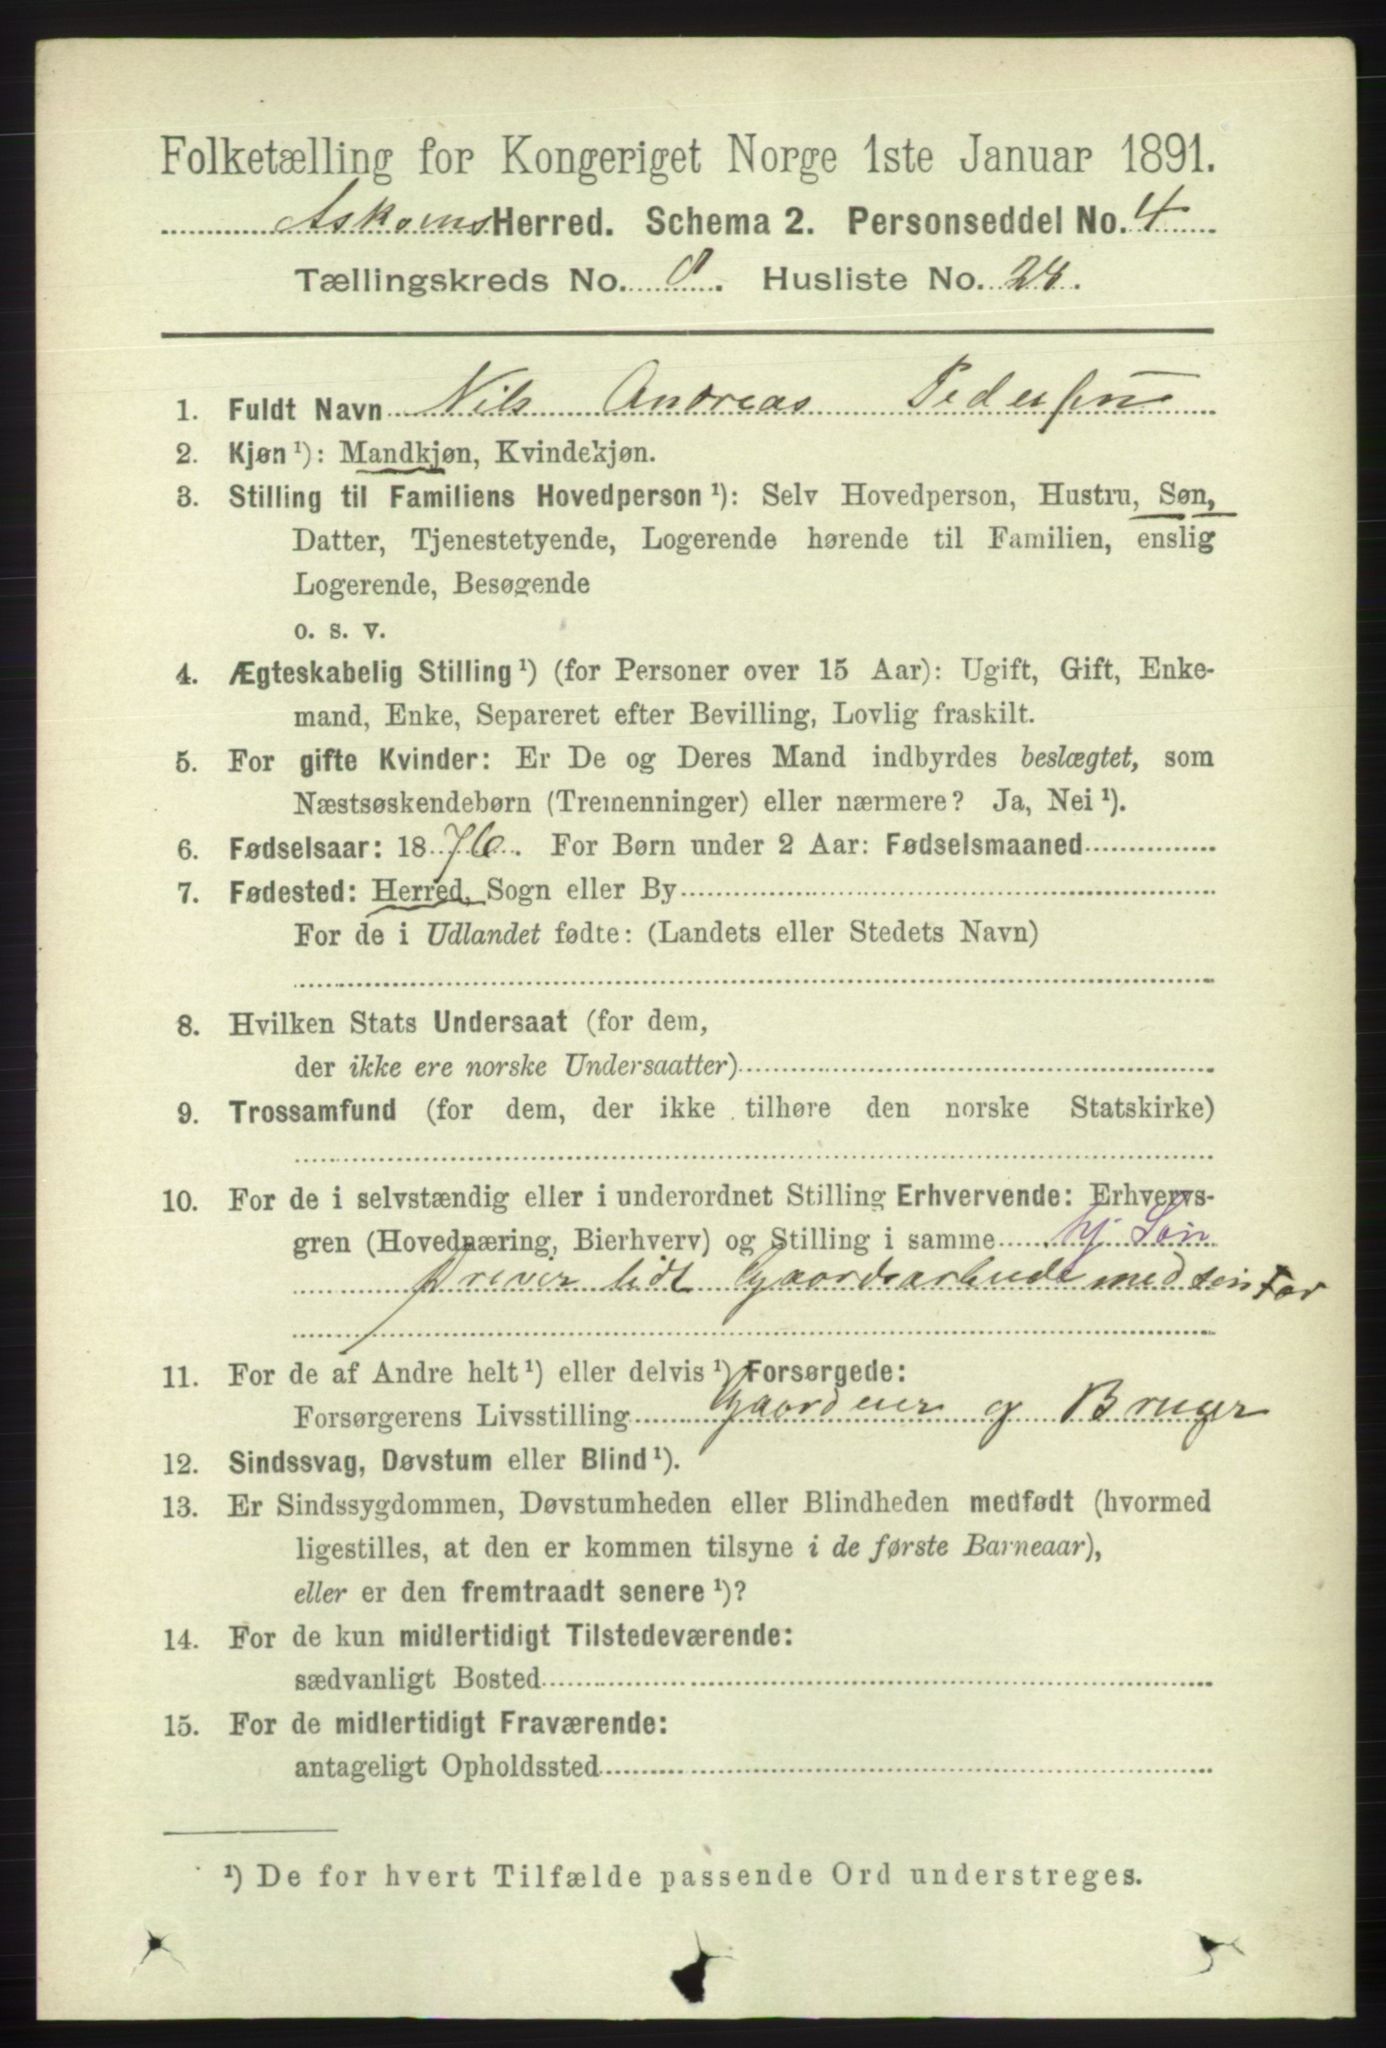 Folketælling for Kongeriget Norge 1ste Januar 1891.
Askvolls Herred. Schema 2. Personseddel No. 4
Tællingskreds No. 8. Husliste No. 24.
1. Fuldt Navn Nils Andreas Pedersen
2. Kjøn ¹): Mandkjøn, Kvindekjøn.
3. Stilling til Familiens Hovedperson ¹): Selv Hovedperson, Hustru, Søn,
Datter, Tjenestetyende, Logerende hørende til Familien, enslig
Logerende, Besøgende
o. s. v.
4. Ægteskabelig Stilling ¹) (for Personer over 15 Aar): Ugift, Gift, Enke-
mand, Enke, Separeret efter Bevilling, Lovlig fraskilt.
5. For gifte Kvinder: Er De og Deres Mand indbyrdes beslægtet, som
Næstsøskendebørn (Tremenninger) eller nærmere? Ja, Nei ¹).
6. Fødselsaar: 1876. For Børn under 2 Aar: Fødselsmaaned
7. Fødested: Herred, Sogn eller By
For de i Udlandet fødte: (Landets eller Stedets Navn)
8. Hvilken Stats Undersaat (for dem,
der ikke ere norske Undersaatter)
9. Trossamfund (for dem, der ikke tilhøre den norske Statskirke)
10. For de i selvstændig eller i underordnet Stilling Erhvervende: Erhvervs-
gren (Hovednæring, Bierhverv) og Stilling i samme hj Søn
Driver lidt Gaardsarbeide med sin Far
11. For de af Andre helt ¹) eller delvis ¹) Forsørgede:
Forsørgerens Livsstilling Gaardeier og Bruger
12. Sindssvag, Døvstum eller Blind ¹).
13. Er Sindssygdommen, Døvstumheden eller Blindheden medfødt (hvormed
ligestilles, at den er kommen tilsyne i de første Barneaar),
eller er den fremtraadt senere ¹)?
14. For de kun midlertidigt Tilstedeværende:
sædvanligt Bosted
15. For de midlertidigt Fraværende:
antageligt Opholdssted
¹) De for hvert Tilfælde passende Ord understreges.